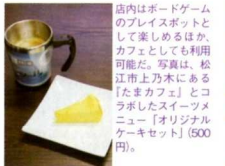 店内はボードゲーム
のプレイスポットと
して楽しめるほか、
カフェとしても利用
可能だ。写真は、松
江市上乃木にある
『たまカフェ』とコ
ラボしたスイーツメ
ニュー「オリジナル
ケーキセット」(500
円)。